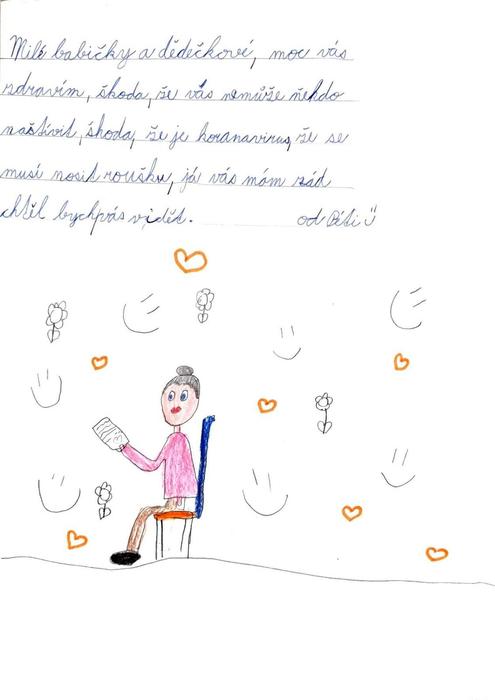 Milé babičky a dědečkové, moc vás
zdravím, škoda, že vás nemůže ňekdo
naštívit, škoda, že je koranavirus, že se
musí nosit roušku, já vás mám rád
chtěl bychvás vidět. od Péti